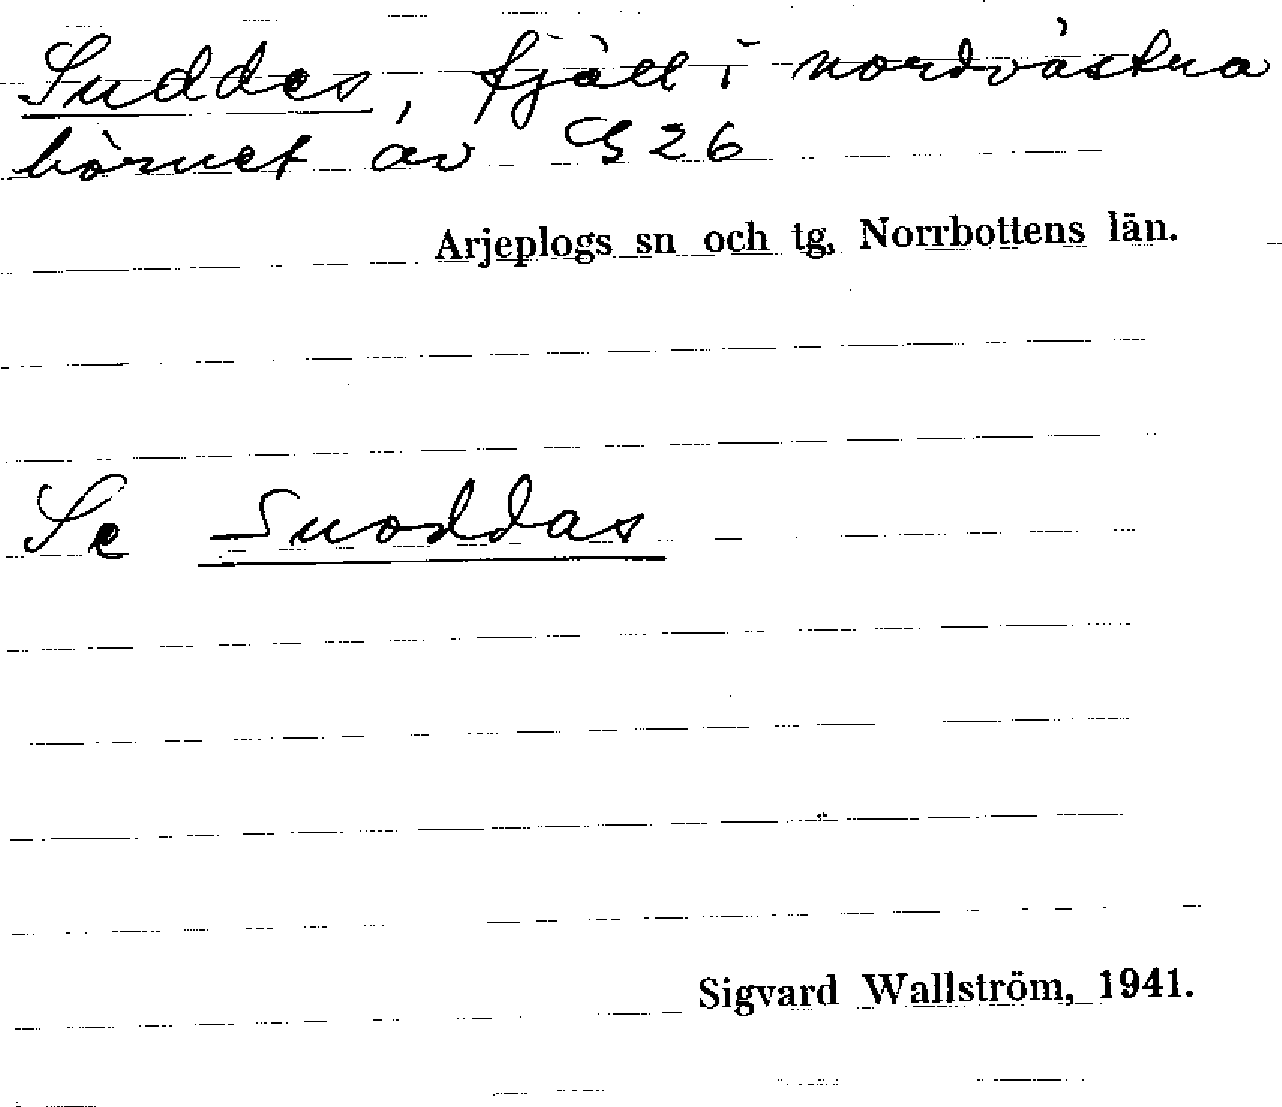 Suddes, fjäll i nordvästra
hörnet av S 26
Arjeplogs sn och tg, Norrbottens län.
Se Suoddas
Sigvard Wallström, 1941.